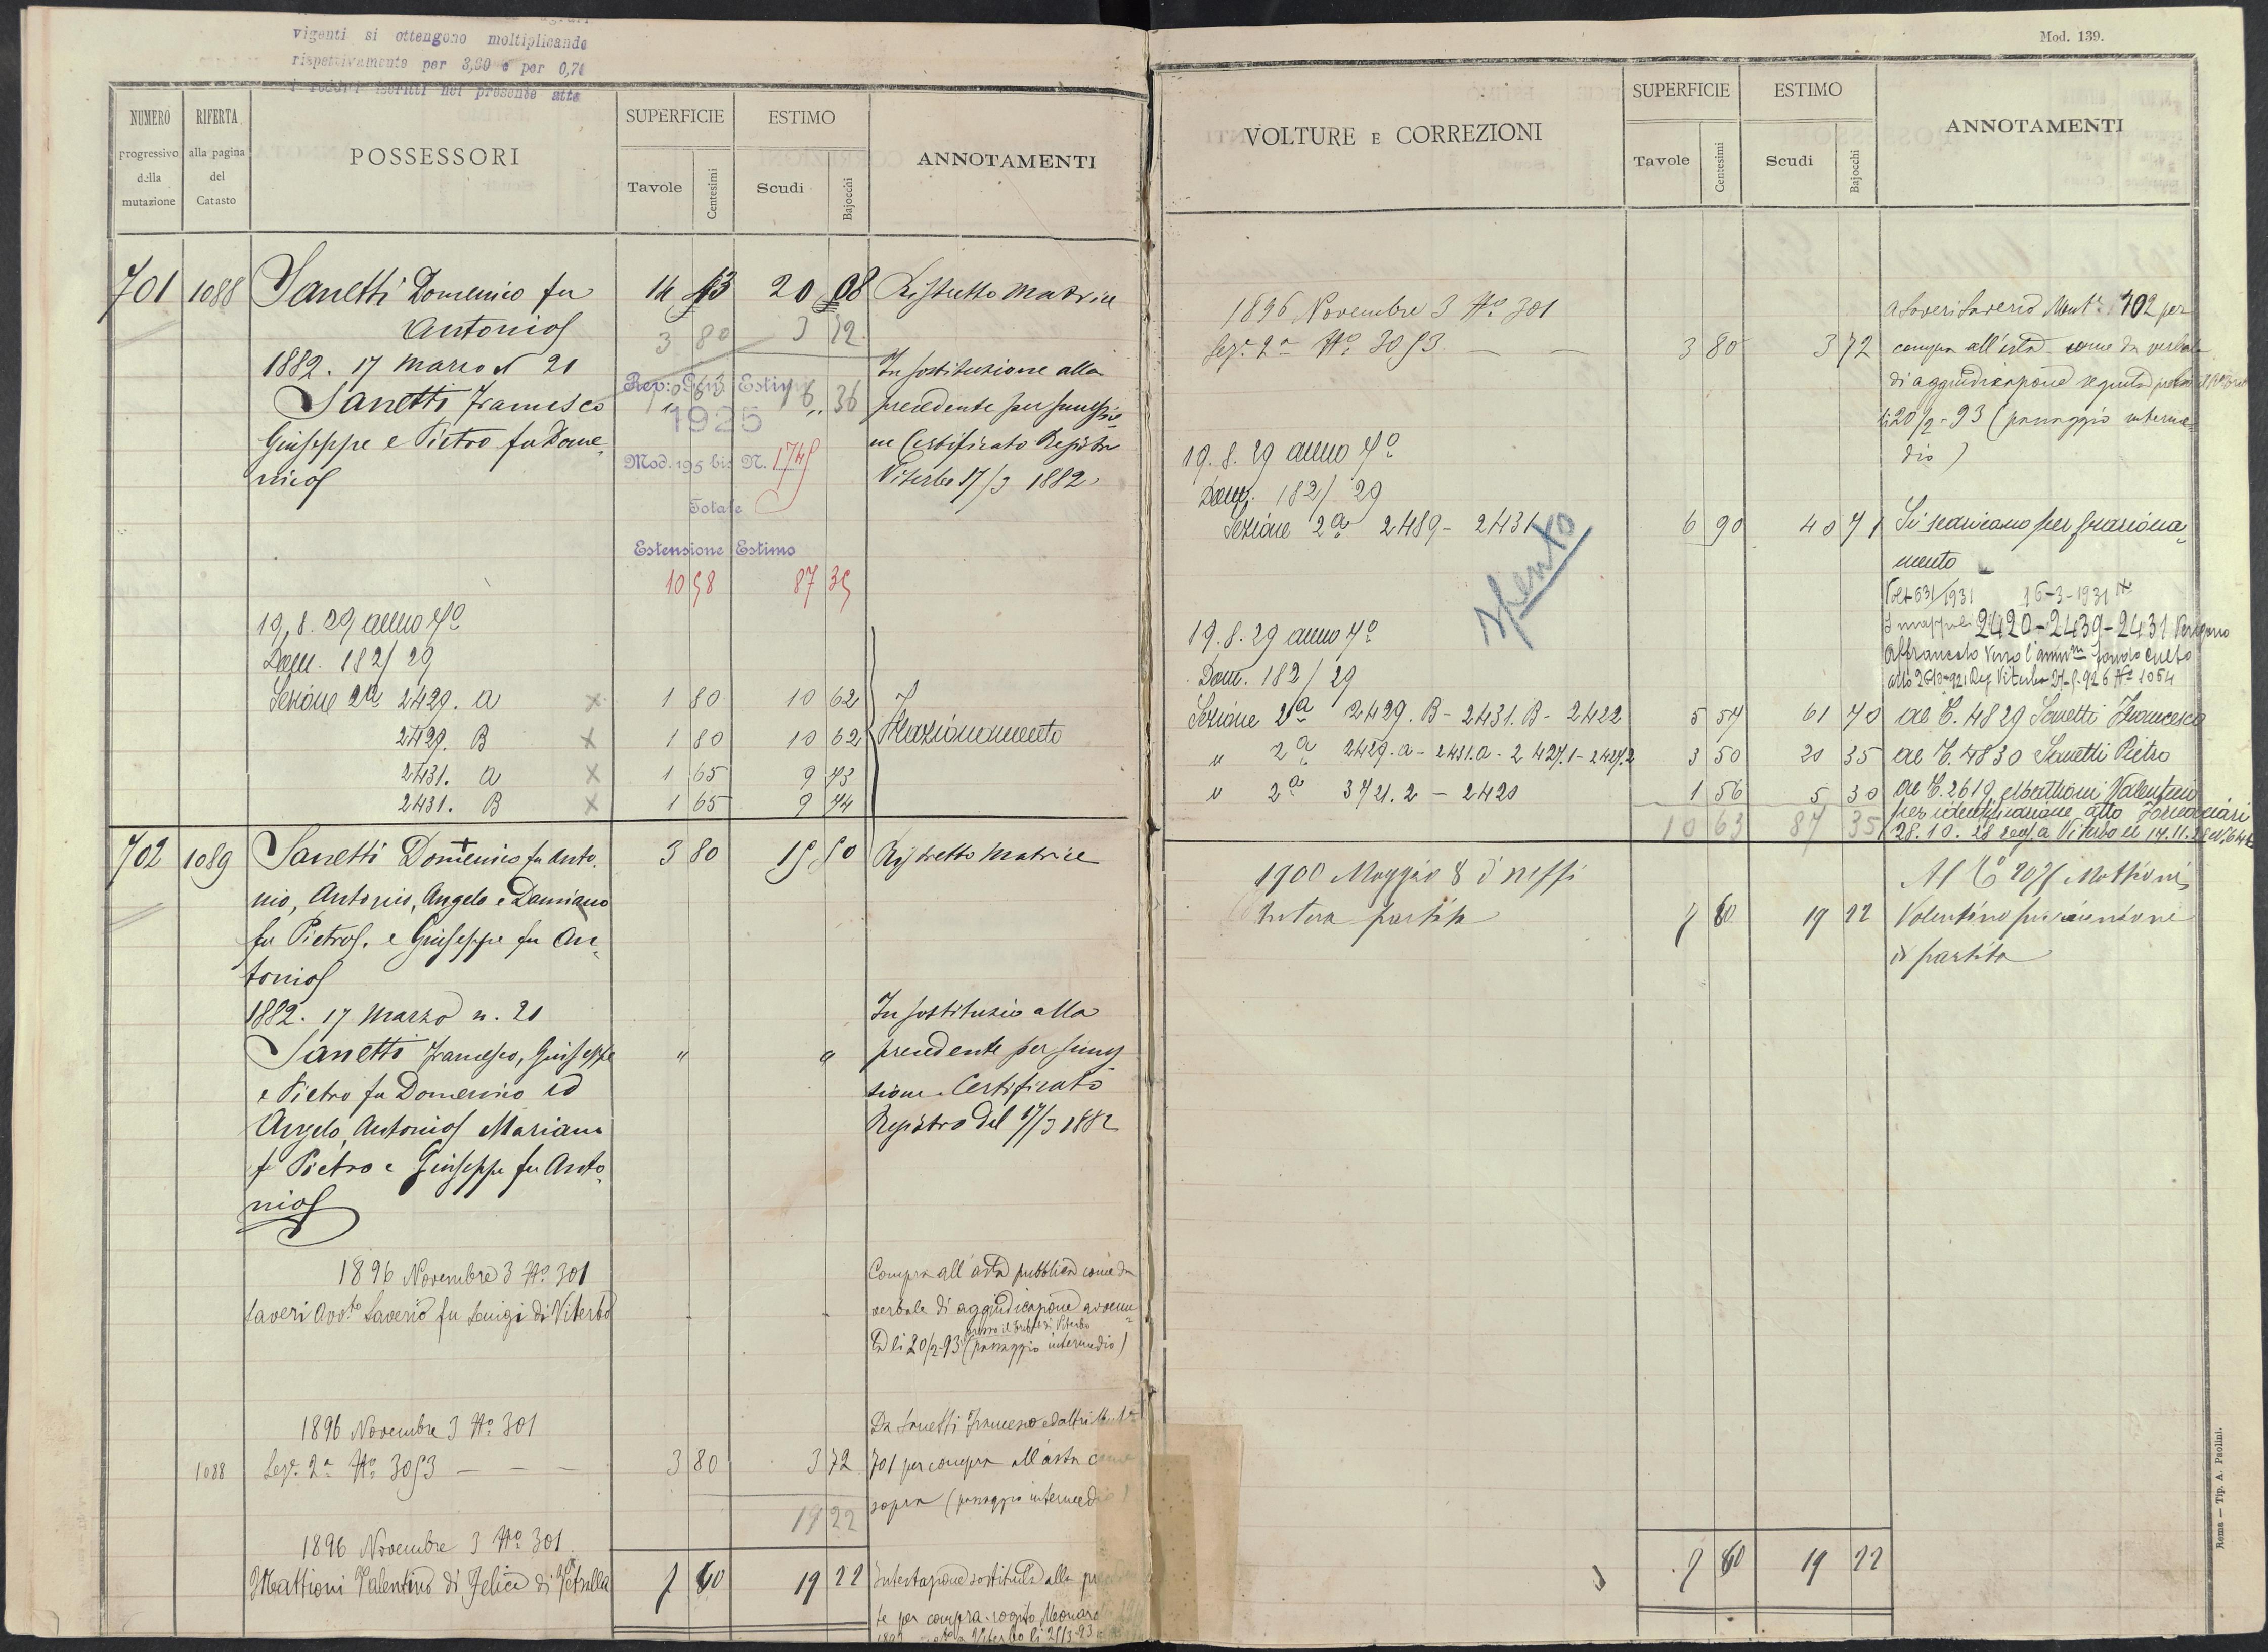 vigenti si ottengono moltiplicando
rispettivamente per 3,60 e per 0,71
i redditi iscritti nel presente atto
NUMERO progressivo della mutazione
RIFERTA alla pagina del Catasto
POSSESSORI
SUPERFICIE
Tavole Centesimi
ESTIMO
Scudi Bajocchi
ANNOTAMENTI
701 1088 Sanetti Domenico fu 14 43 20 08 Ristretto Matrice
Antonio
3 80 3 72
1882. 17 Marzo N 21 In sostituzione alla
Sanetti Francesco 10 63 " 16 36 precedente per successio
Rev: Gen Estimi
1925
Giuseppe e Pietro fu Dome ne Certificato Registro
nico Viterbo 17/3 1882.
Mod. 195 bis N. 1745
Totale
Estensione Estimo
10 58 87 35
19.8.29 anno 7º
Dom. 182/29
Sezione 2ª 2429. a x 1 80 10 62
2429. B x 1 80 10 62 Frazionamento
2431. a x 1 65 9 73
2431. B x 1 65 9 74
702 1089 Sanetti Domenico fu Anto 3 80 15 50 Ristretto Matrice
nio, Antonio, Angelo e Damiano
fu Pietro, e Giuseppe fu An
tonio
1882. 17 Marzo n. 21 In sostituzio alla
Sanetti Francesco, Giuseppe " " precedente per succes
e Pietro fu Domenico ed sione Certificato
Angelo, Antonio e Mariano Registro del 17/3 1882
f Pietro e Giuseppe fu Anto
nio
1896 Novembre 3 Nº 301 Compra all'asta pubblica come da
Saveri Avv.to Saverio fu Luigi di Viterbo - - verbale di aggiudicazione avvenu
presso il Trib.le di Viterbo
ta li 20/2-93 (passaggio intermedio)
1896 Novembre 3 Nº 301 Da Sanetti Francesco ed altri Mut.e
1088 Sez.e 2ª Nº 3053 — — — 3 80 3 72 701 per compra all'asta come
sopra (passaggio intermedio)
19 22
1896 Novembre 3 Nº 301
Mattioni Valentino di Felice di Vetralla 7 60 19 22 Intestazione sostituita alla
te per compra - rogito
Viterbo li
Mod. 139.
VOLTURE E CORREZIONI
SUPERFICIE
Tavole Centesimi
ESTIMO
Scudi Bajocchi
ANNOTAMENTI
1896 Novembre 3 Nº 301 a Saveri Saverio Mut.e 702 per
Sez.e 2ª Nº 3053 — — 3 80 3 72 compra all'asta come da verbale
di aggiudicazione seguita
li 20/2-93 (passaggio interme
dio)
19.8.29 anno 7º
Dom. 182/29
Sezione 2ª 2489 - 2431 6 90 40 71 Si scaricano per fraziona
mento
Spento
Volt 631/1931 16-3-1931
I mappali 2420-2439-2431 Vengono
19.8.29 anno 7º
Dom. 182/29
Sezione 2ª 2429.B - 2431.B - 2422 5 57 61 70 al C. 4829 Sanetti Francesco
" 2ª 2429.a - 2431.a - 2427.1 - 2427.2 3 50 20 35 al C. 4830 Sanetti Pietro
" 2ª 3721.2 - 2420 1 56 5 30 al C. 2619 Mattioni Valentino
per identificazione atto Fornaciari
10 63 87 35 28.10.28 reg. a Viterbo il 14.11.28
1900 Maggio 8
Intera partita 7 60 19 22 Mattioni
Valentino per riunione
di partita
7 60 19 22
Roma — Tip. A. Paolini.